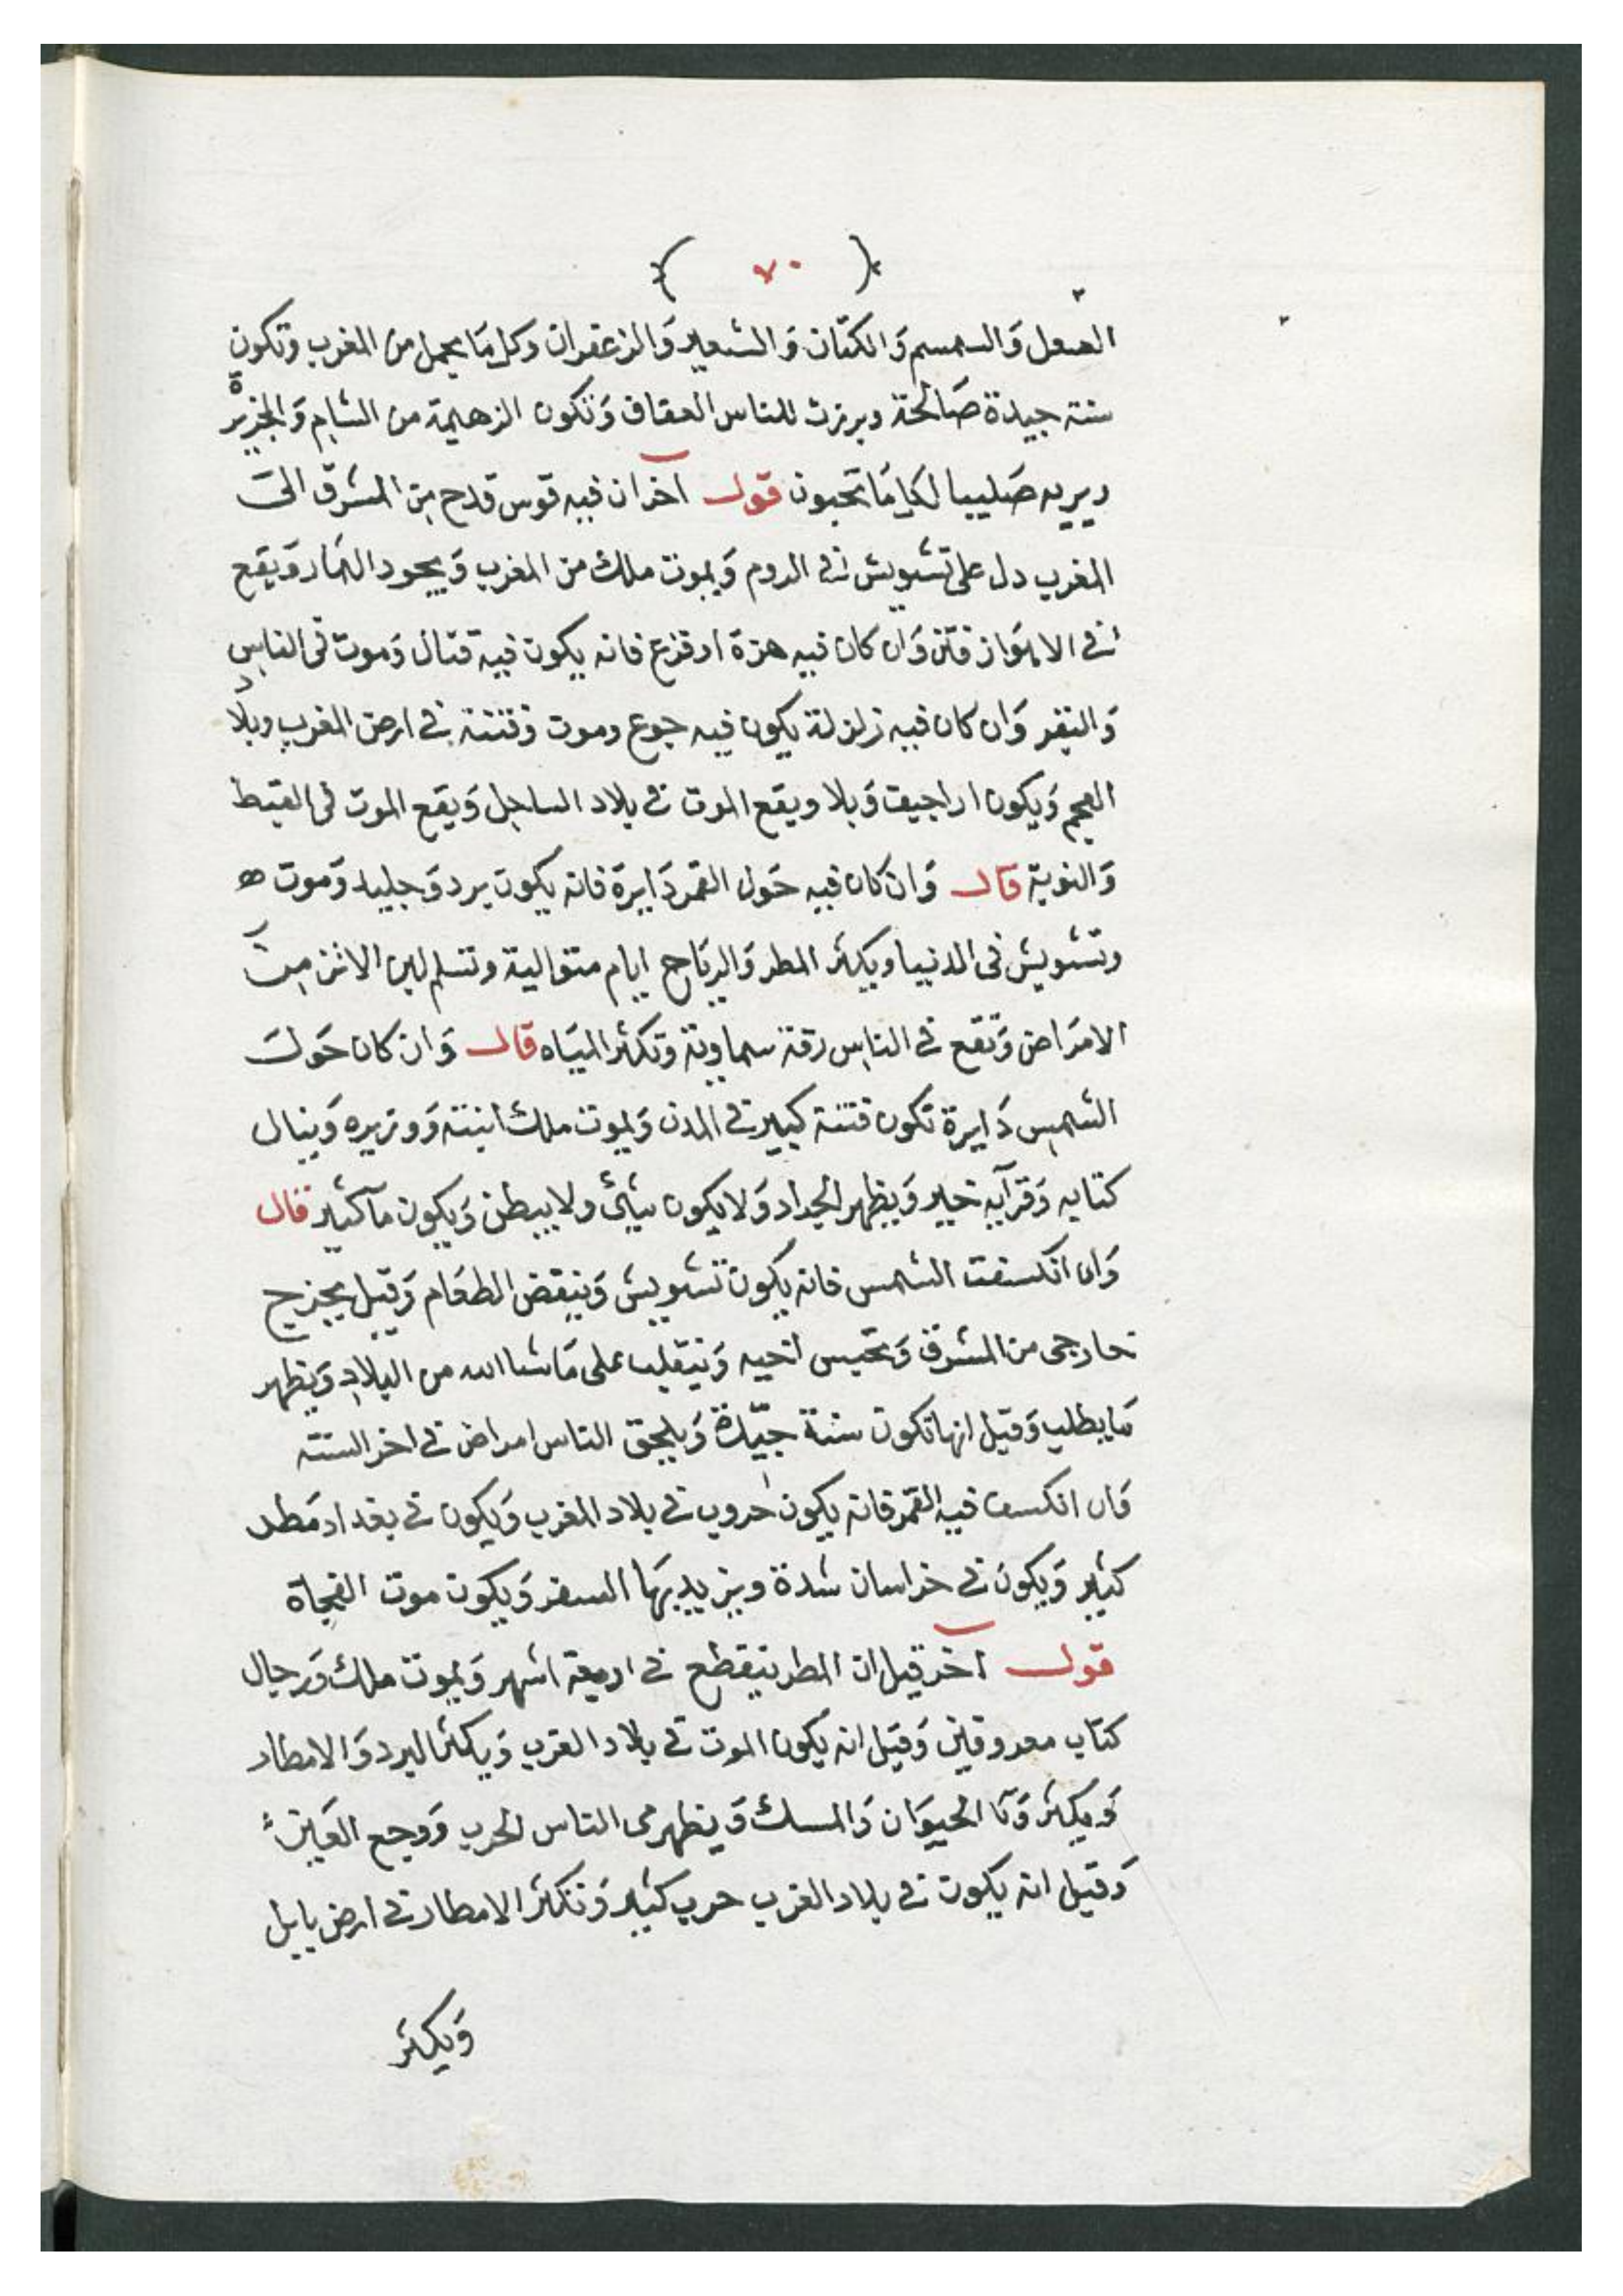 ( ٧٠ )
العسل وَالسمسم وَالكتّان وَالشعير وَالزعفران وكل مَا يحمل من المغرب وَتكون
سنة جيدة صَالحة ويرزق للناس العفاف وَتكون الزهيمة من الشام وَالجزيرة
قول آخر ان فيه قوس قدح من المشرق الىَ
المغرب دل على تشويش في الروم وَيموت ملك من المغرب وَيجود الثمار وَيقع
في الاهوَاز فتن وَان كان فيه هزة او فزع فانه يكون فيه قتال وَموت في الناس
وَالبقر وَان كان فيه زلزلة يكون فيه جوع وموت وفتنة في ارض المغرب وبلاد
العجم وَيكون اراجيف وَبلا ويقع الموت في بلاد الساحل وَيقع الموت في القبط
وَالنوبة قال وَان كان فيه حَول القمر دَايرَة فانه يكون برد وَجليد وَموت ه
وتشويش في الدنيا ويكثر المطر وَالرياح ايام متوالية وتسلم الاتن مِن
الامرَاض وَتقع في الناس رقة سماوية وَتكثر الميَاه قال وَان كان حَول
الشمس دَايرة تكون فتنة كبير في المدن وَيموت ملك ابنته وَوزيره وَينال
كتابه وَقرآبه خير وَيظهر الجراد وَلا يكون شيئ ولا يبطن وَيكون مآ كثير قال
وَان انكسفت الشمس فانه يكون تشويش وَينقض الطعَام وَقيل يخرج
خارجى من المشرق وَيحبس اخيه وَيتقلب على مَا شا الله من البلاد وَيظهر
مَا يطلب وَقيل انها تكون سنة جيّدة وَيلحق الناس امراض في اخر السنه
وَان انكسف فيه القمر فانه يكون حروب في بلاد المغرب وَيكون في بغداد مَطر
كثير وَيكون في خراسان شدة ويزيد بهَا السعر وَيكون موت الفجاة
قول آخر قيل ان المطر ينقطع في اربعة اشهر وَيموت ملك وَرجال
كتاب معروفين وَقيل انه يكون الموت في بلاد الغرب وَيكثر البرد وَالامطار
وَيكثر وَبَا الحيوَان وَالسمك وَيظهر في الناس الجرب وَوجع العَين
وَقيل انه يكون في بلاد الغرب حرب كثير وَتكثر الامطار في ارض بابل
وَيكثر